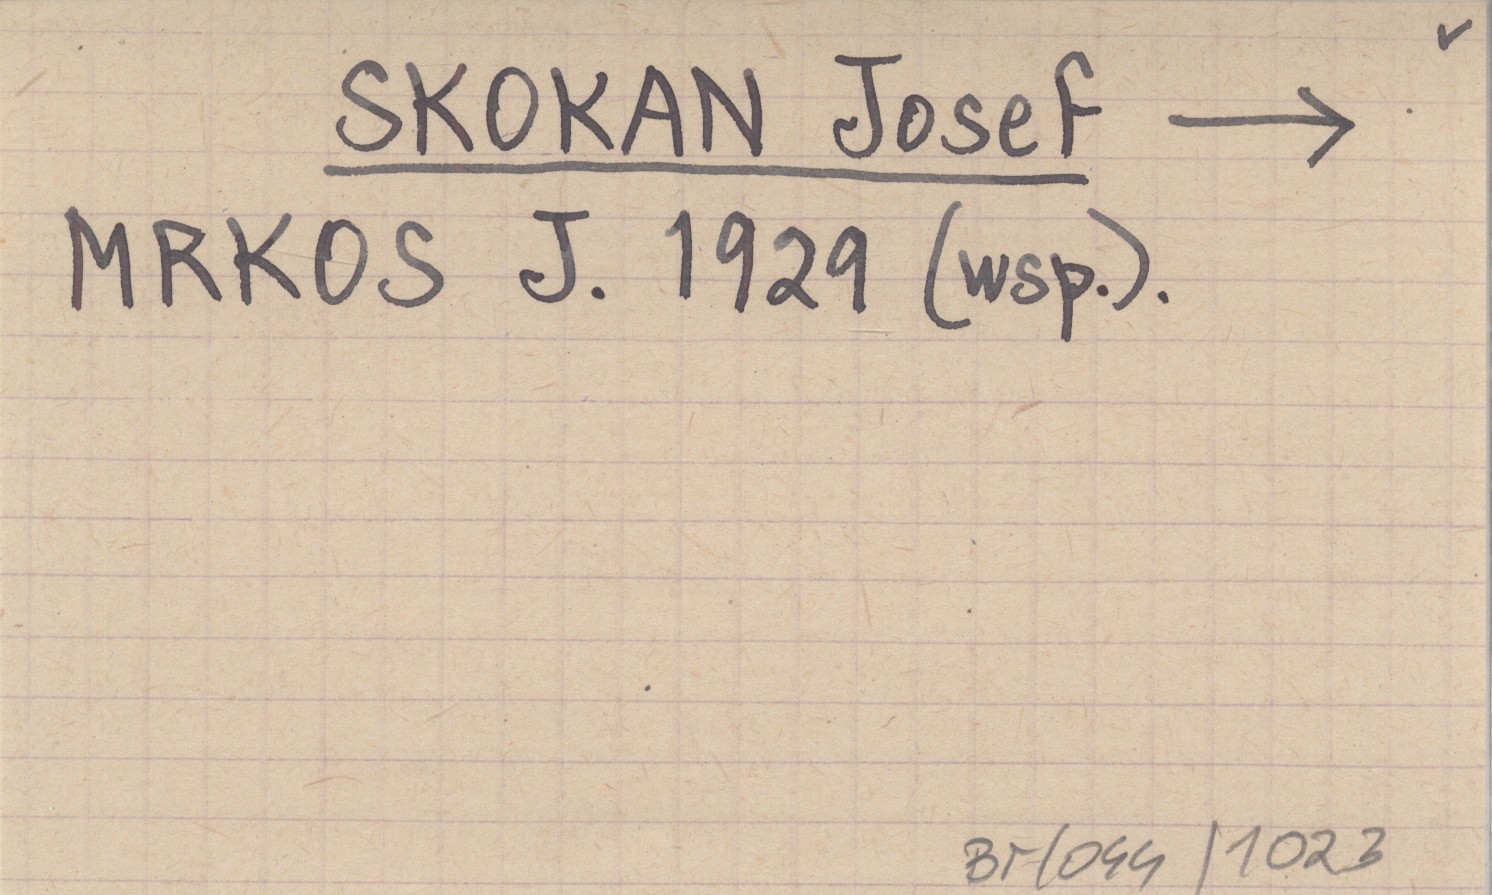 SKOKAN Josef →
MRKOS J. 1929 (wsp.).
/1023